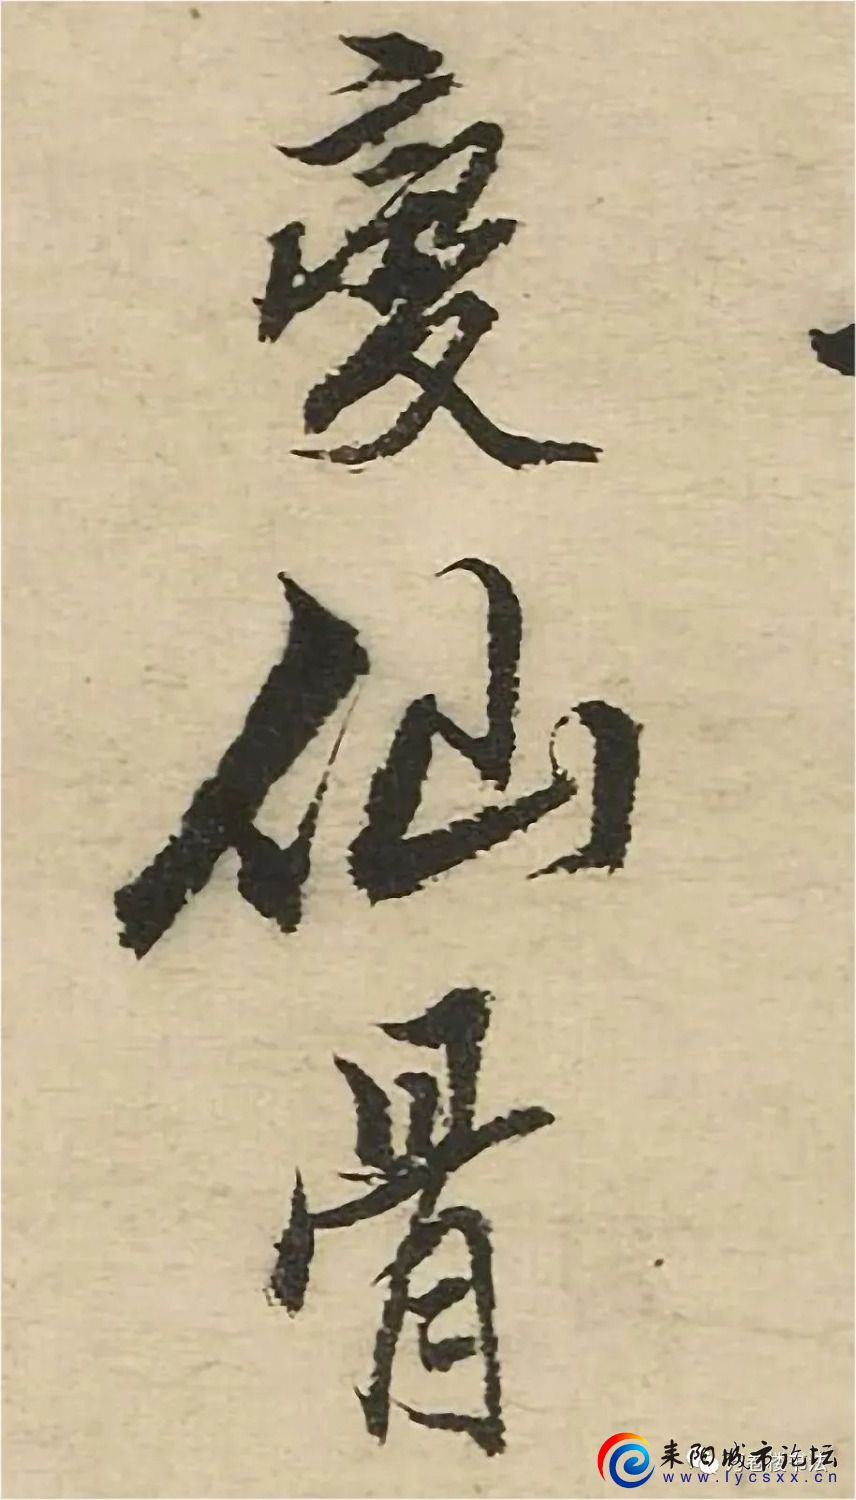 仙
骨
耒阳城市论坛
www.lycsxx.cn